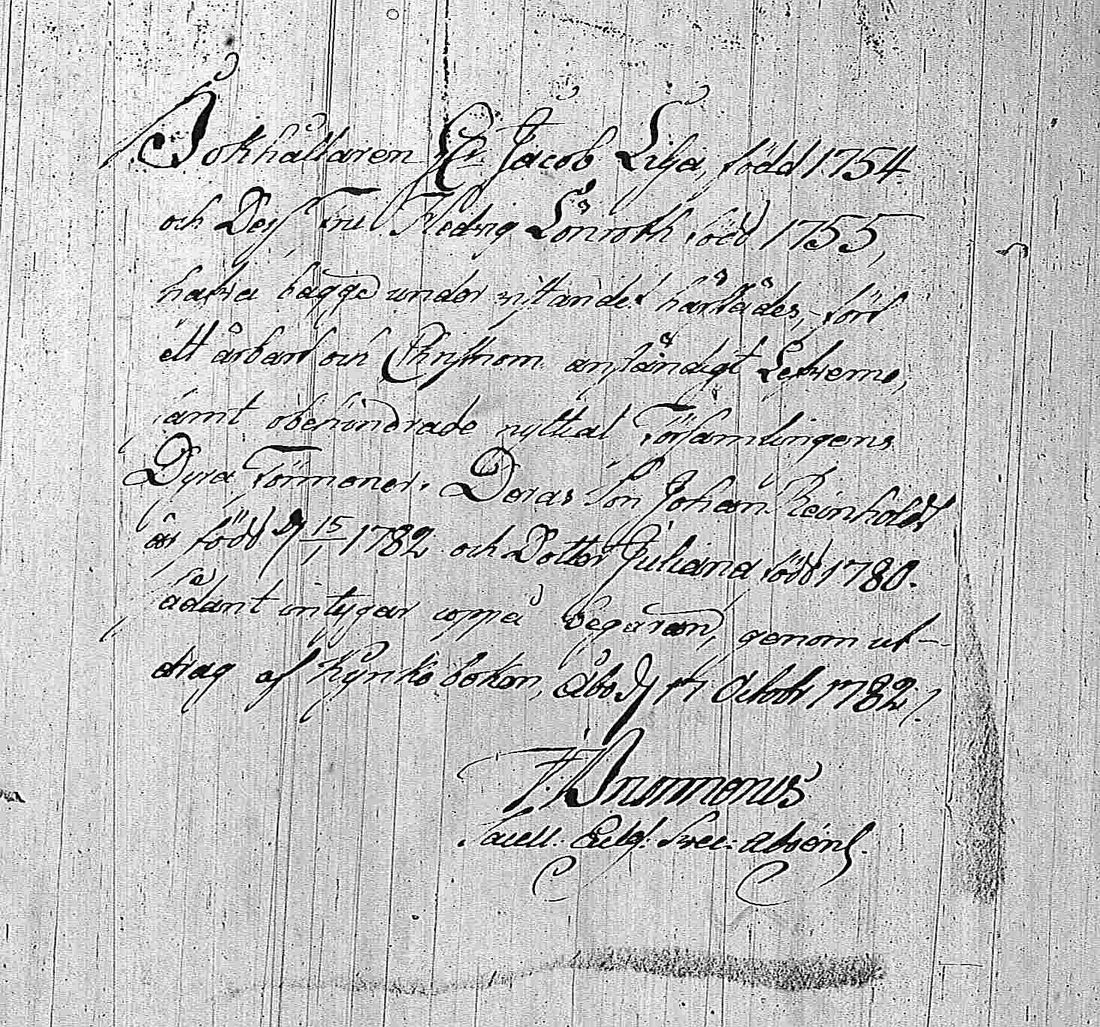 Bokhållaren Hr. Jacob Lilja, född 1754.
och Dess Fru Hedvig Lönroth född 1755,
hafva bägge under vistandet härstädes, fört
ett ärbart och Christnom anständigt Lefverne,
samt obehindrade nyttjat Församlingens
Dyra Förmoner. Deras Son Johan Reinholdt
är född d 15/1 1782 och Dotter Juliana född 1780.
sådant intygar uppå begäran, genom ut-
drag af Kyrkoboken, Åbo d Octobr 1782.
Sacell. Eccl. Svec. Aboëns.